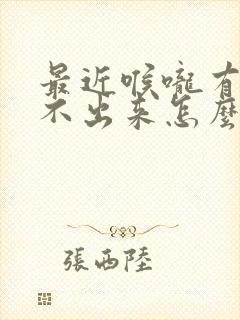 最近喉嚨有
不出来怎麼
張西陸